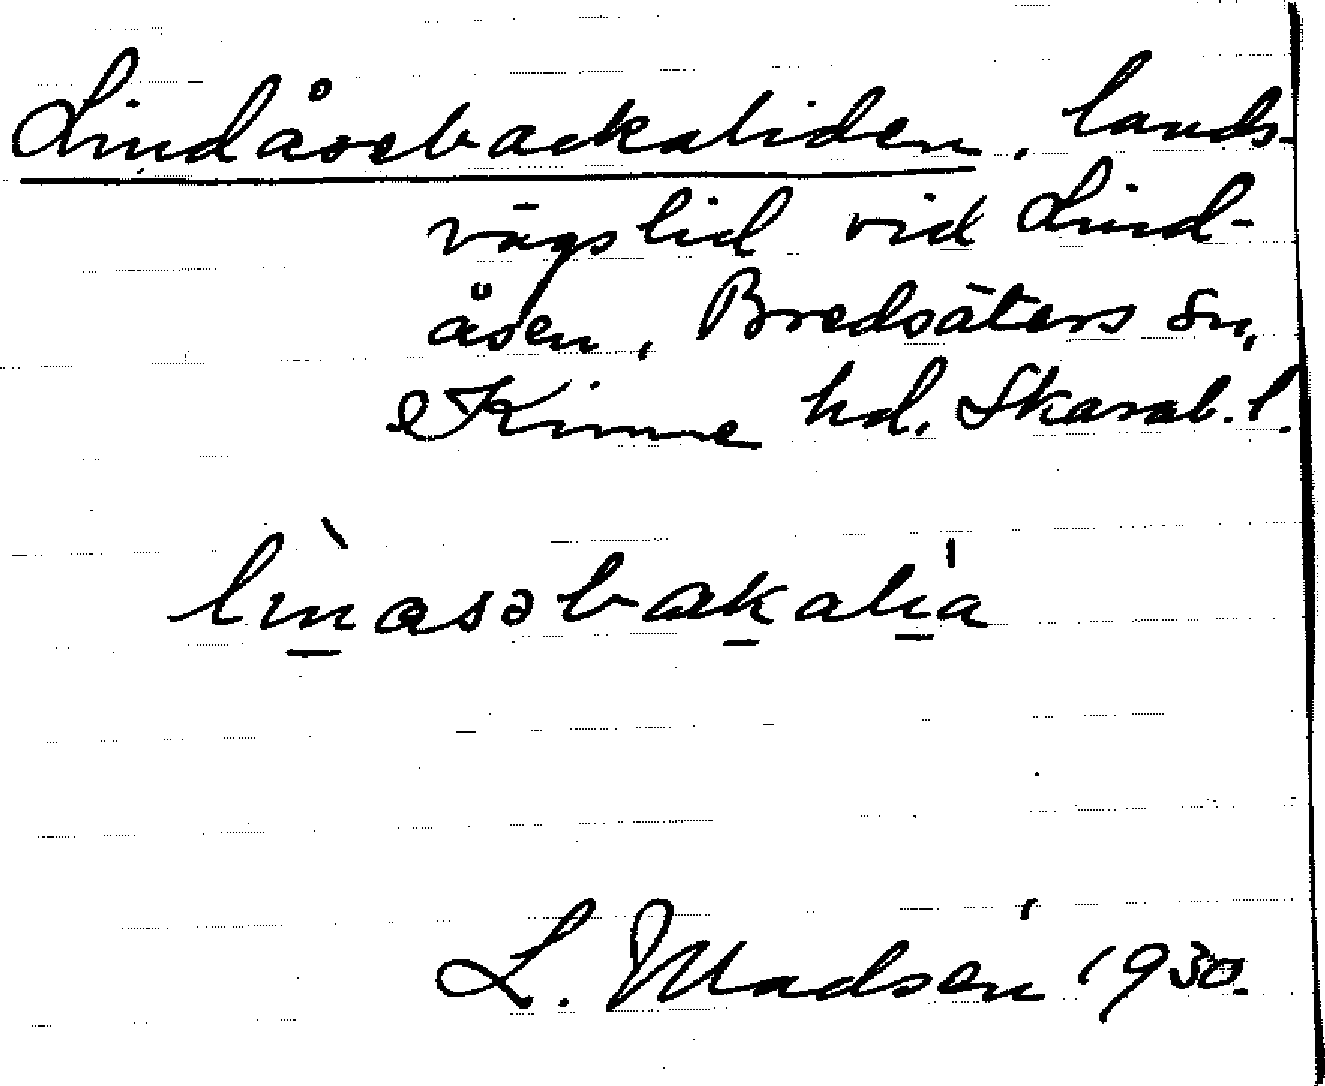 Lindåsebackaliden, lands-
vägslid vid Lind-
åsen, Bredsäters sn,
Kinne hd. Skarab. l.
lìnasəbakalı̍a
L. Madsén 1930.